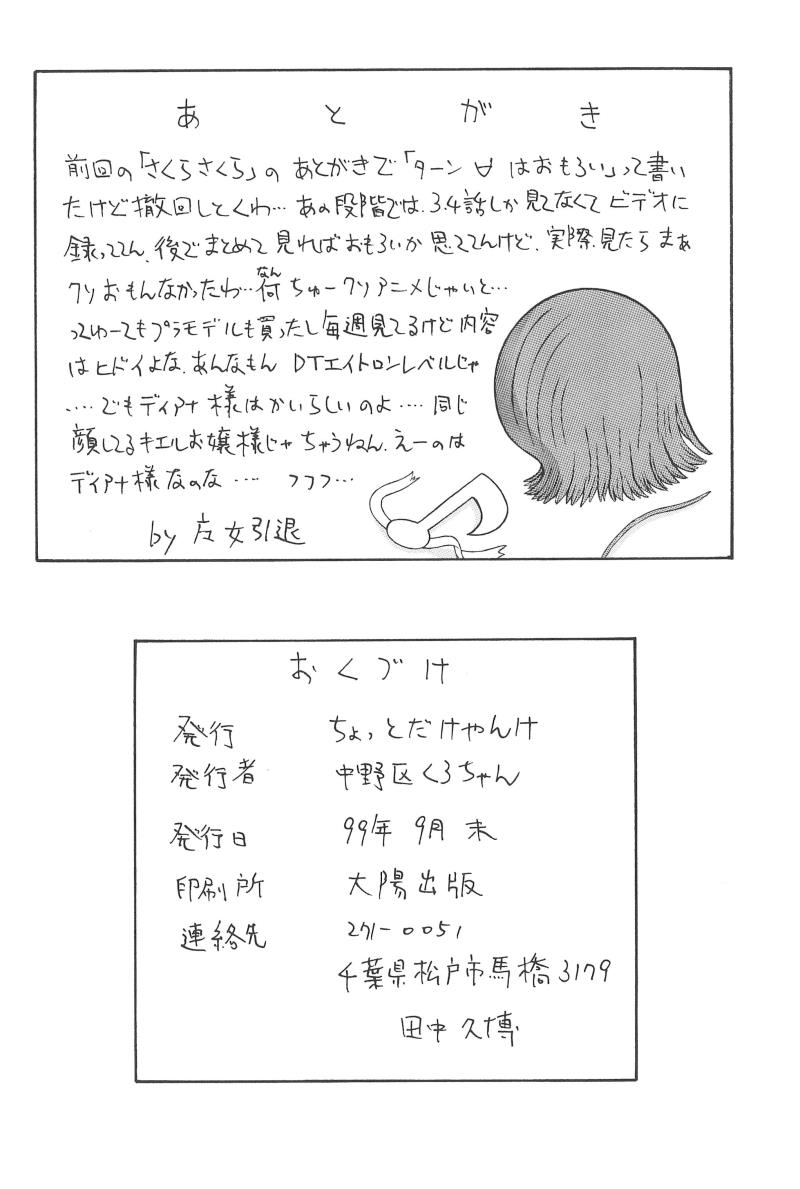 あとがき
前回の「さくらさくら」の あとがきで「ターン∀ はおもろい」って書い
たけど撤回しとくわ…あの段階では、3.4話しか見てなくて ビデオに
録っててん、後でまとめて見ればおもろいか思ててんけど、実際見たら まぁ
クソおもんなかったわ…荷ちゅークソアニメじゃいと…
なん
っちゅーてもプラモデルも買ったし毎週見てるけど内容
はヒドイよな、あんなもん DTエイトロンレベルじゃ
‥‥でもディアナ様はかいらしいのよ‥‥同じ
顔してるキエルお嬢様じゃちゃうねん、えーのは
ディアナ様なのな‥‥ フフフ…
by 女引退
おくづけ
発行 ちょっとだけやんけ
発行者 中野区くろちゃん
発行日 99年 9月 末
印刷所 大陽出版
連絡先 271-0051
千葉県松戸市馬橋3179
田中久博